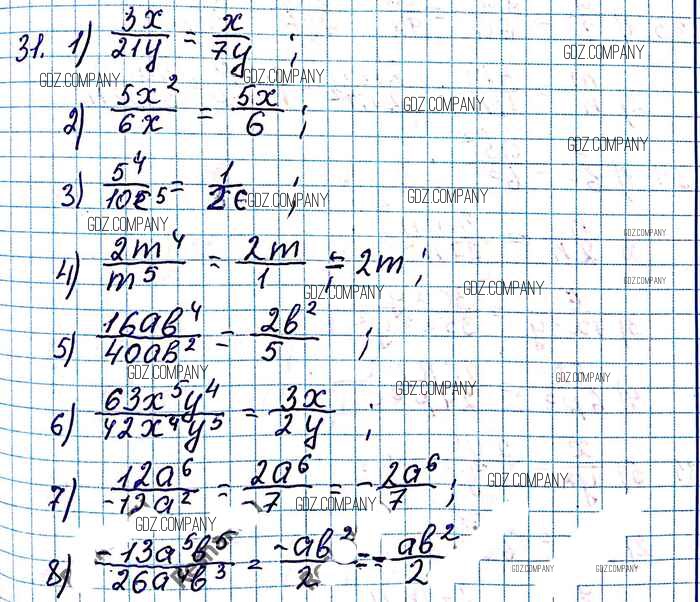 31. 1) 3x/21y = x/7y ;
GDZ.COMPANY GDZ.COMPANY GDZ.COMPANY
2) 5x²/6x = 5x/6 ;
GDZ.COMPANY GDZ.COMPANY
3) 5⁴/10c⁵ = 1/2c ;
GDZ.COMPANY GDZ.COMPANY GDZ.COMPANY GDZ.COMPANY
4) 2m⁴/m⁵ = 2m/1 = 2m ;
GDZ.COMPANY GDZ.COMPANY GDZ.COMPANY
5) 16ab⁴/40ab² = 2b²/5 ;
GDZ.COMPANY GDZ.COMPANY GDZ.COMPANY
6) 63x⁵y⁴/42x⁴y⁵ = 3x/2y ;
7) 12a⁶/-12a² = 2a⁶/-7 = -2a⁶/7 ;
GDZ.COMPANY GDZ.COMPANY GDZ.COMPANY
8) -13a⁵b⁵/26a⁴b³ = -ab²/2 = -ab²/2
GDZ.COMPANY GDZ.COMPANY